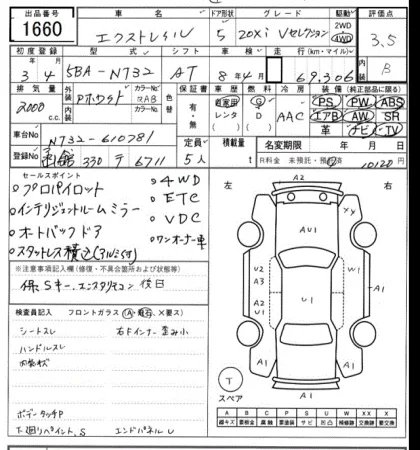 出品番号 車名 ドア形状 グレード 駆動 評価点
1660 エクストレイル 5 20xi Vセレクション 2WD 4WD 3.5
初度登録 型式 シフト 車検 走行(km・マイル) 内装
3 4 5BA-NT32 AT 8年4月 69,306 B
排気量 外装 カラーNo. 色替 保証書 車歴 燃料 冷房 装備(純正部品に限る)
2000 c.c. カラーNo. RAB 有・無 自家用 レンタ G D AAC PS PW ABS
エアB AW SR
革 ナビ TV
車台No. NT32-610781 定員 積載量 名変期限 年 月 日
登録No. 330 テ 6711 5人 t R料金 未預託・預託済 10120 円
セールスポイント
プロパイロット 4WD
インテリジェントルームミラー ETC
オートバックドア VDC
スタッドレス積込(アルミ付) ワンオーナー車
※注意事項記入欄(修復・不具合箇所および改造等)
保、Sキー、エンスタリモコン 後日
検査員記入 フロントガラス (A・飛石、X要ス)
シートスレ 右Fインナー歪み小
ハンドルスレ
内装キズ
ボデータッチP
下廻りペイント、S エンドパネルU
左 右
A2
XY
AU1
U2
A3
W1
A2
U1
U1
A1
A1
A1
A1
T
スペア
A B C P S U W X XX
線キズ 要板金 腐蝕 要塗装 サビ 凹凸 補修跡 要交換 交換跡